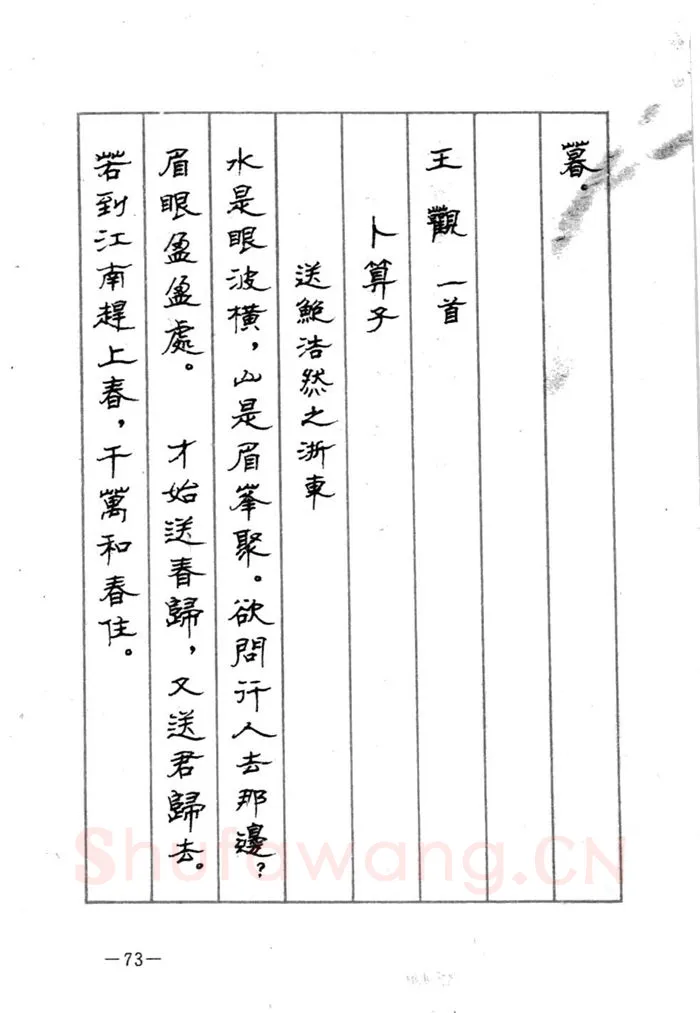 暮。
王觀 一首
卜算子
送鮑浩然之浙東
水是眼波橫，山是眉峯聚。欲問行人去那邊？
眉眼盈盈處。 才始送春歸，又送君歸去。
若到江南趕上春，千萬和春住。
—73—
Shufawang.CN